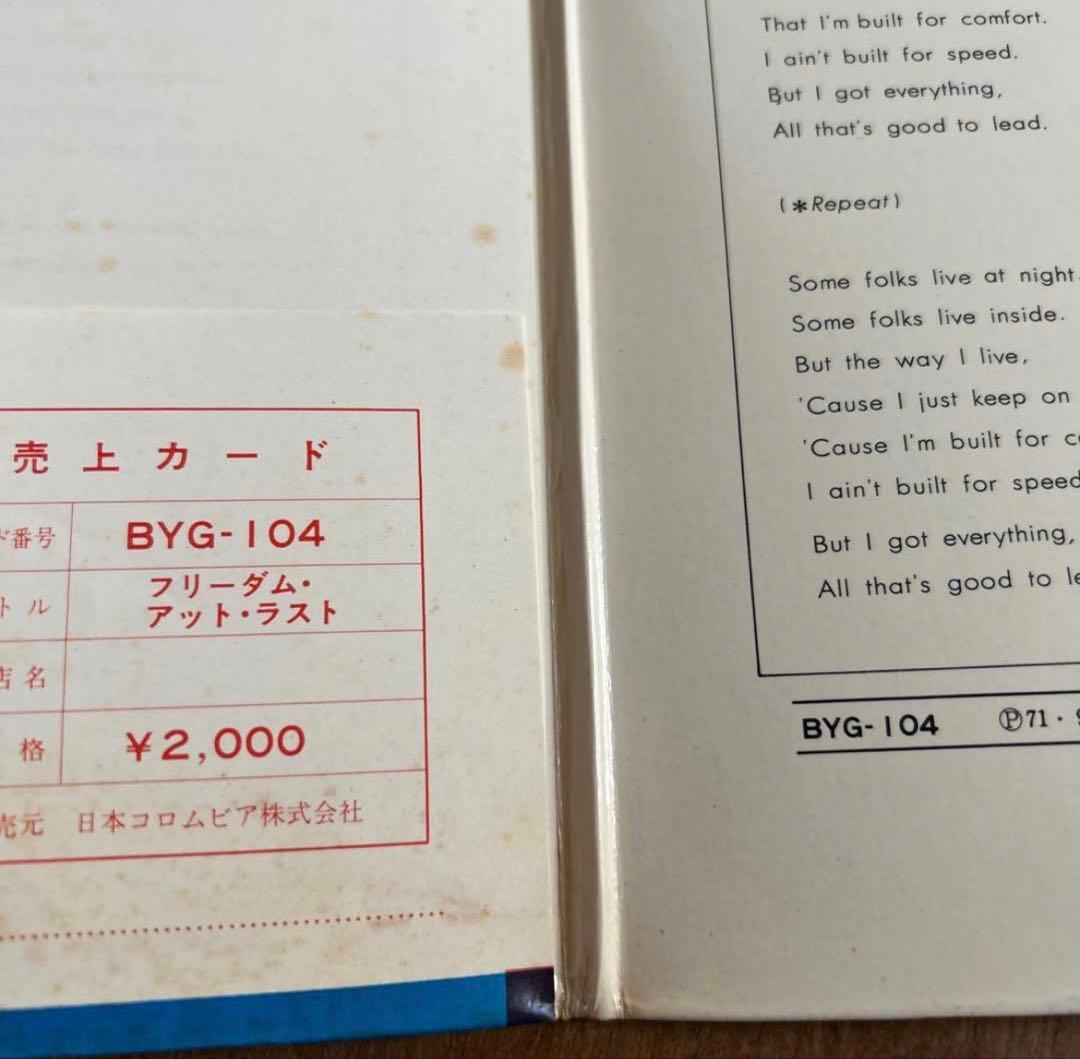 売上カード
番号 BYG-104
トル フリーダム・
アット・ラスト
店名
格 ¥2,000
売元 日本コロムビア株式会社
That I'm built for comfort.
I ain't built for speed.
But I got everything,
All that's good to lead.
(*Repeat)
Some folks live at night.
Some folks live inside.
But the way I live,
'Cause I just keep on
'Cause I'm built for
I ain't built for speed
But I got everything,
All that's good to
BYG-104 Ⓟ71・